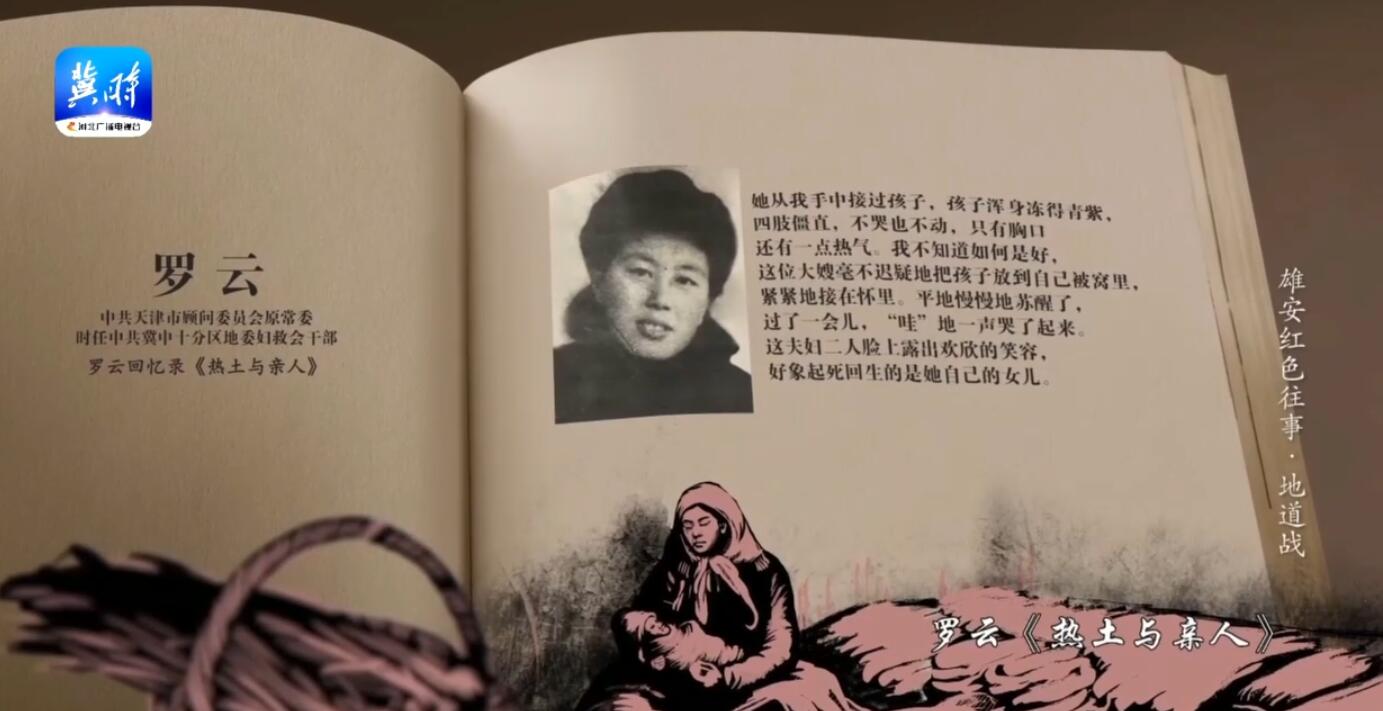 冀时
河北广播电视台
罗云
中共天津市顾问委员会原常委
时任中共冀中十分区地委妇救会干部
罗云回忆录《热土与亲人》
她从我手中接过孩子，孩子浑身冻得青紫，
四肢僵直，不哭也不动，只有胸口
还有一点热气。我不知道如何是好，
这位大嫂毫不迟疑地把孩子放到自己被窝里，
紧紧地接在怀里。平地慢慢地苏醒了，
过了一会儿，“哇”地一声哭了起来。
这夫妇二人脸上露出欢欣的笑容，
好象起死回生的是她自己的女儿。
雄安红色往事·地道战
罗云《热土与亲人》